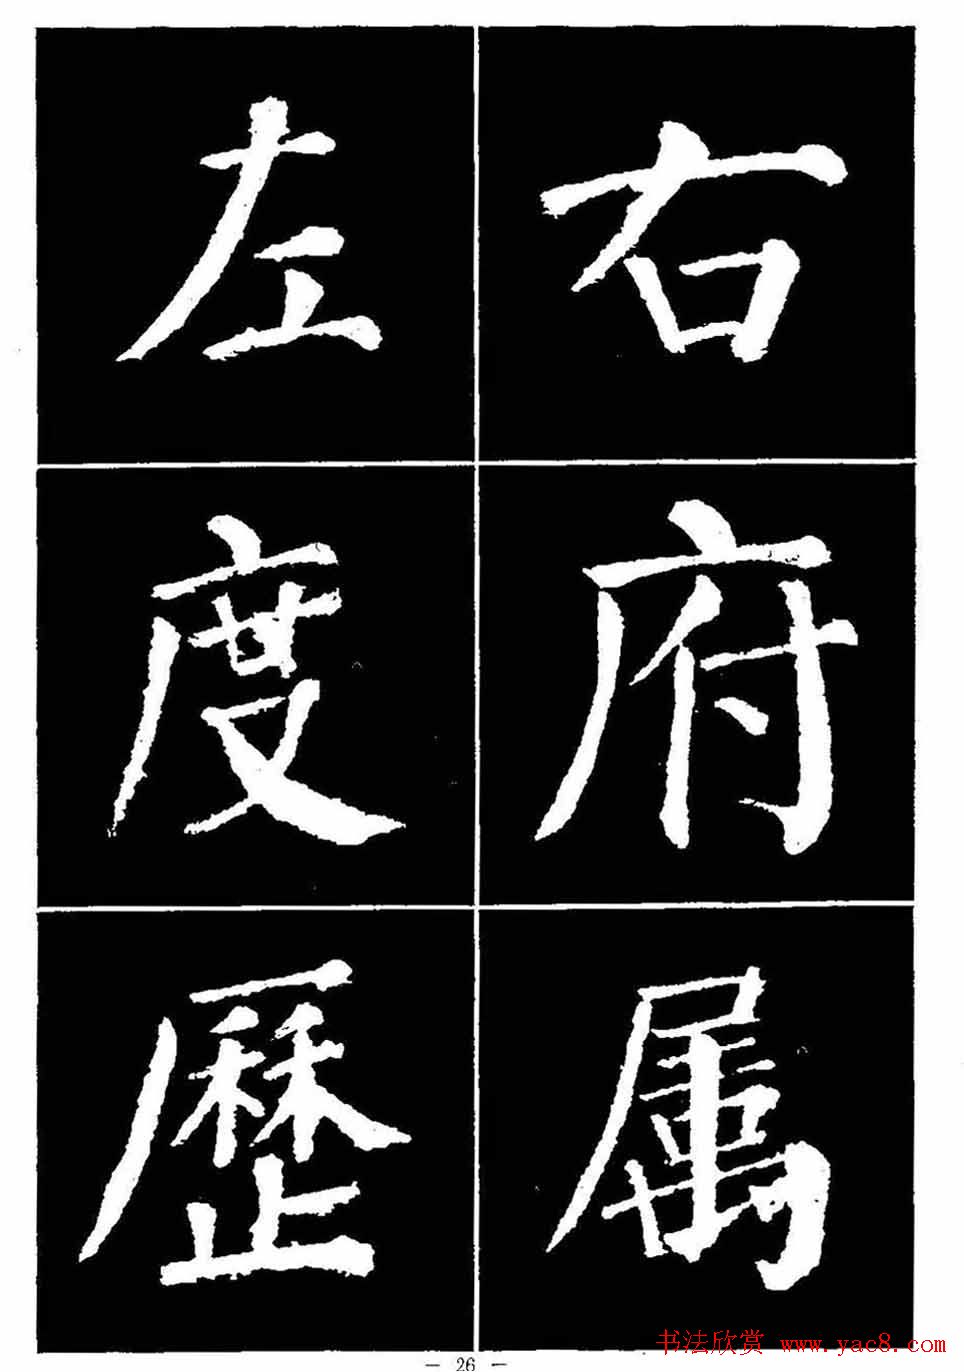 左 右
度 府
歷 属
书法欣赏 www.yac8.com
— 26 —